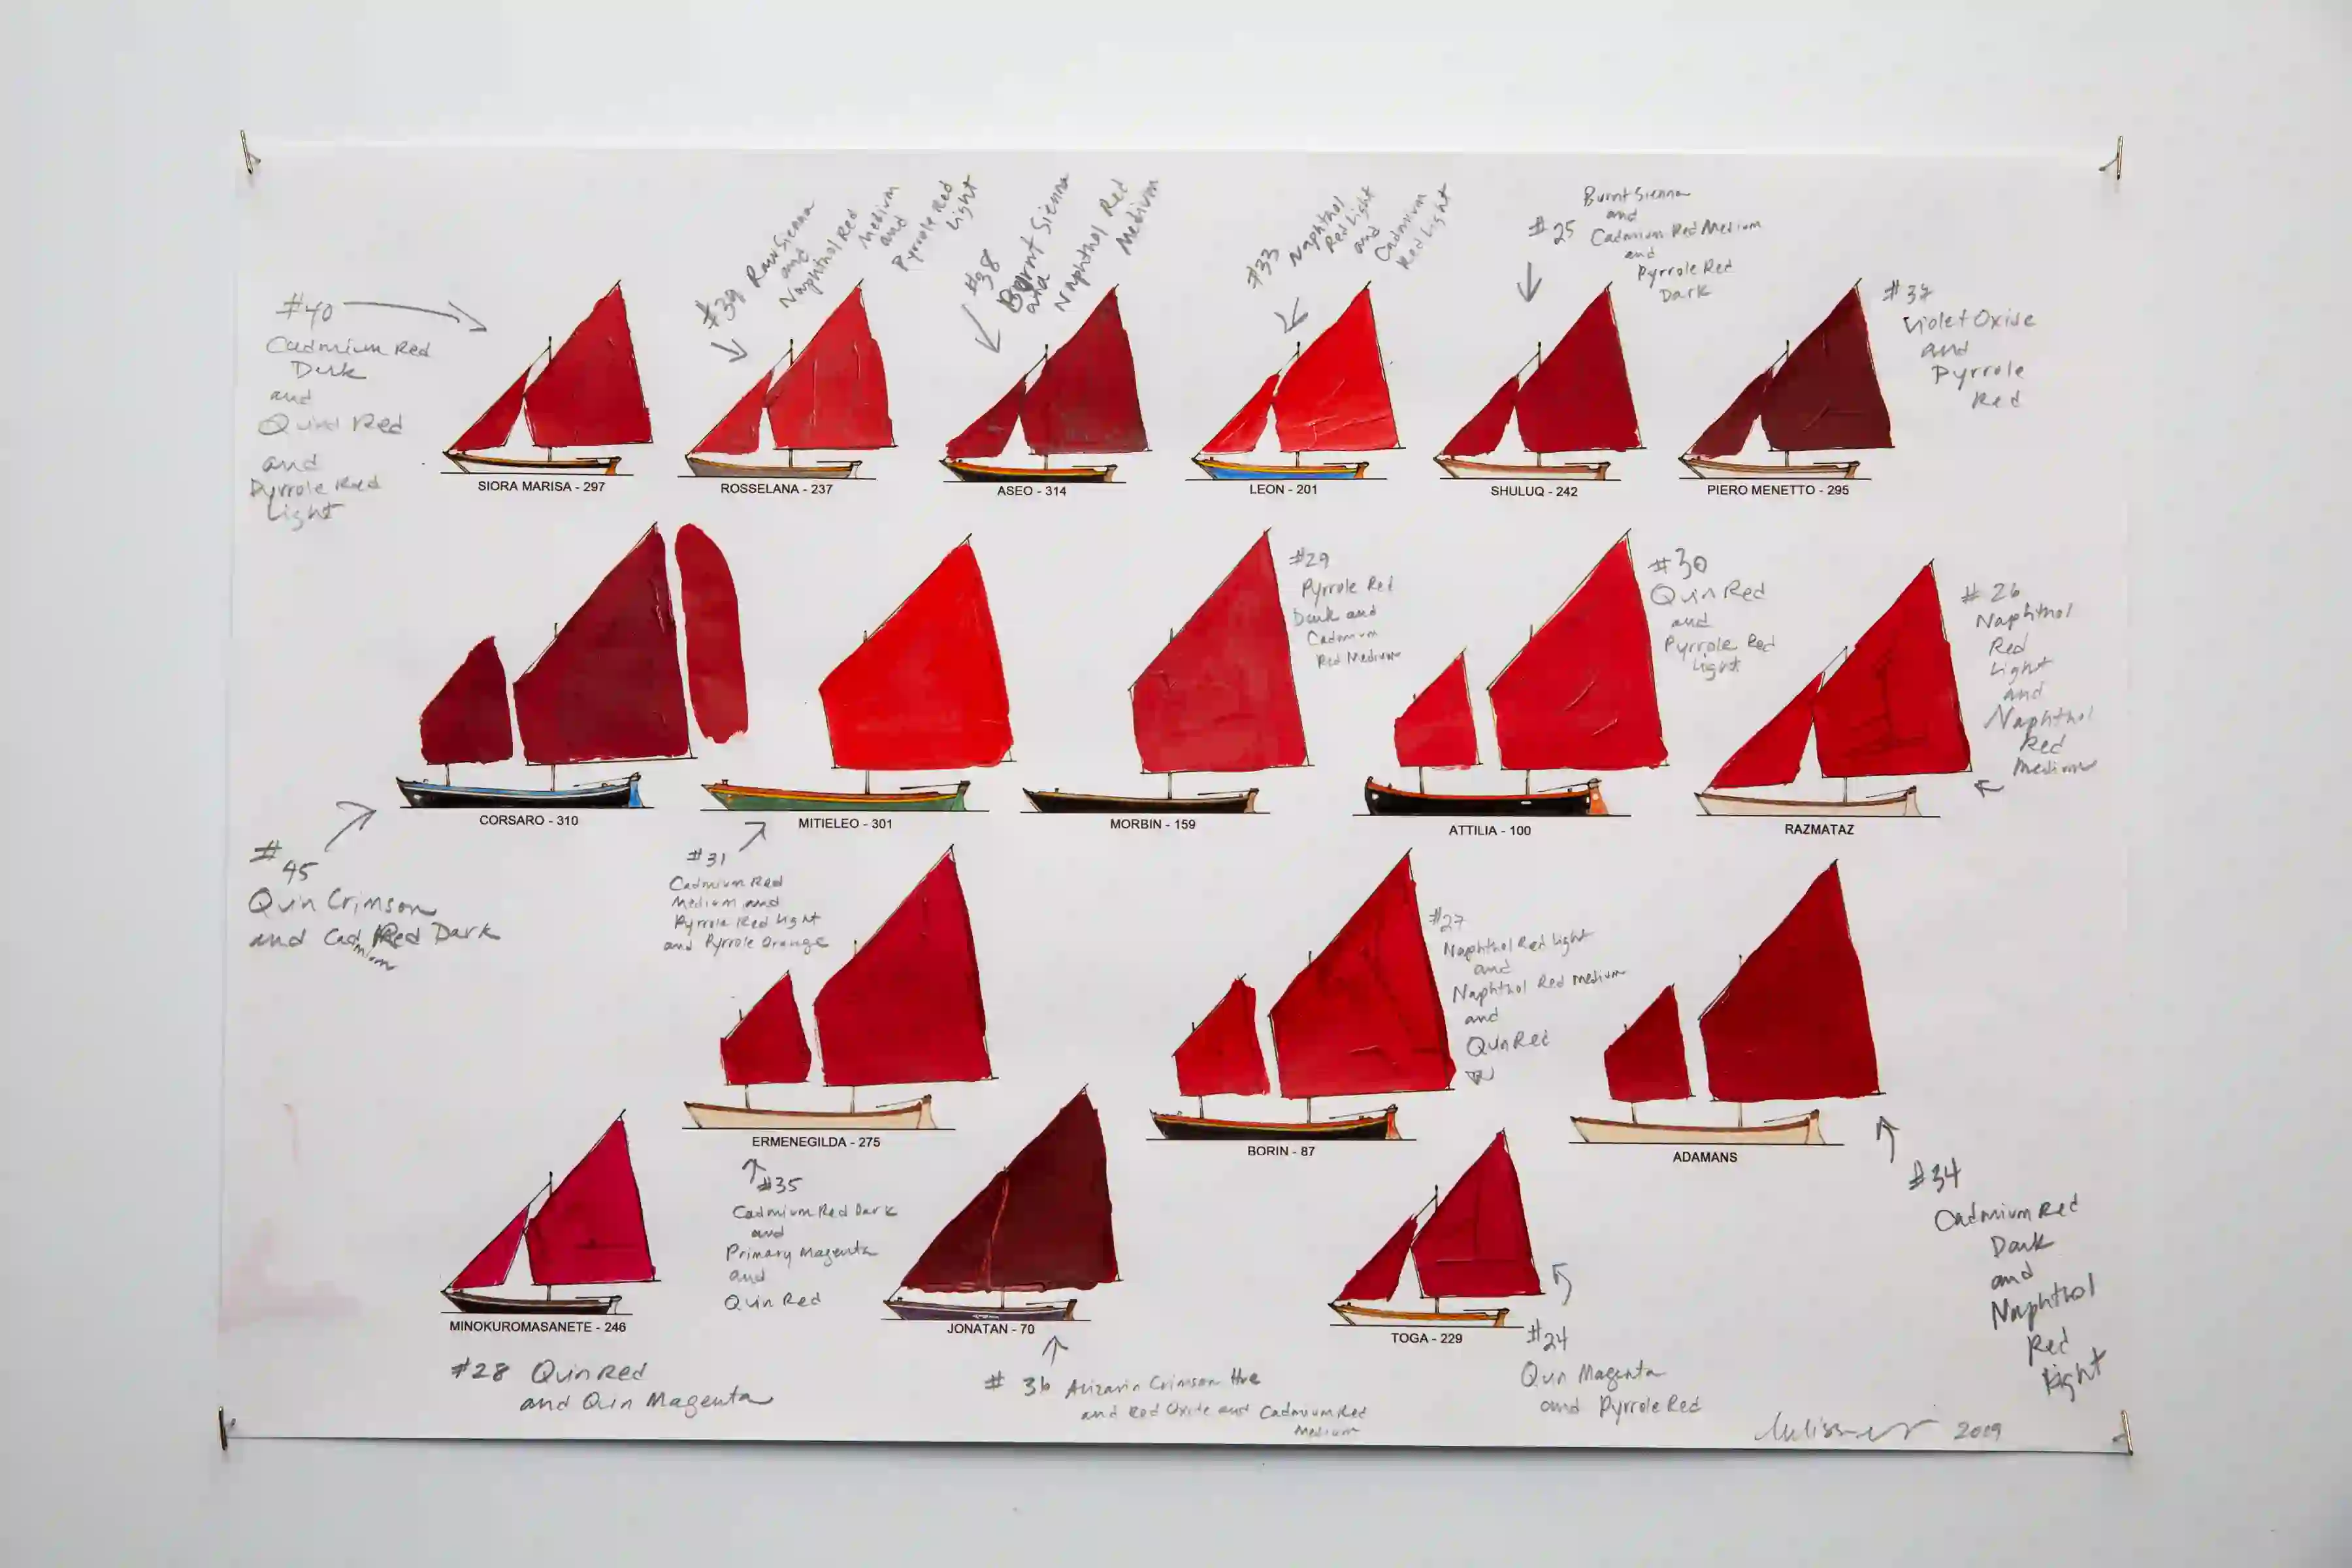 #40
Cadmium Red
Dark
and
Quind Red
and
Pyrrole Red
Light
#39 Raw Sienna
and
Naphthol Red
Medium
and
Pyrrole Red
Light
#38
Burnt Sienna
and
Naphthol Red
Medium
#33
Naphthol
Red Light
and
Cadmium
Red Light
#25
Burnt Sienna
and
Cadmium Red Medium
and
Pyrrole Red
Dark
#37
Violet Oxide
and
Pyrrole
Red
SIORA MARISA - 297
ROSSELANA - 237
ASEO - 314
LEON - 201
SHULUQ - 242
PIERO MENETTO - 295
#29
Pyrrole Red
Dark and
Cadmium
Red Medium
#30
Quin Red
and
Pyrrole Red
Light
#26
Naphthol
Red
Light
and
Naphthol
Red
Medium
CORSARO - 310
MITIELEO - 301
MORBIN - 159
ATTILIA - 100
RAZMATAZ
#45
Quin Crimson
and Cadmium Red Dark
#31
Cadmium Red
Medium and
Pyrrole Red Light
and Pyrrole Orange
#27
Naphthol Red Light
and
Naphthol Red Medium
and
Quin Red
ERMENEGILDA - 275
BORIN - 87
ADAMANS
#35
Cadmium Red Dark
and
Primary Magenta
and
Quin Red
#34
Cadmium Red
Dark
and
Naphthol
Red
Light
MINOKUROMASANETE - 246
JONATAN - 70
TOGA - 229
#28 Quin Red
and Quin Magenta
# 36 Alizarin Crimson Hue
and Red Oxide and Cadmium Red
Medium
#24
Quin Magenta
and Pyrrole Red
2009